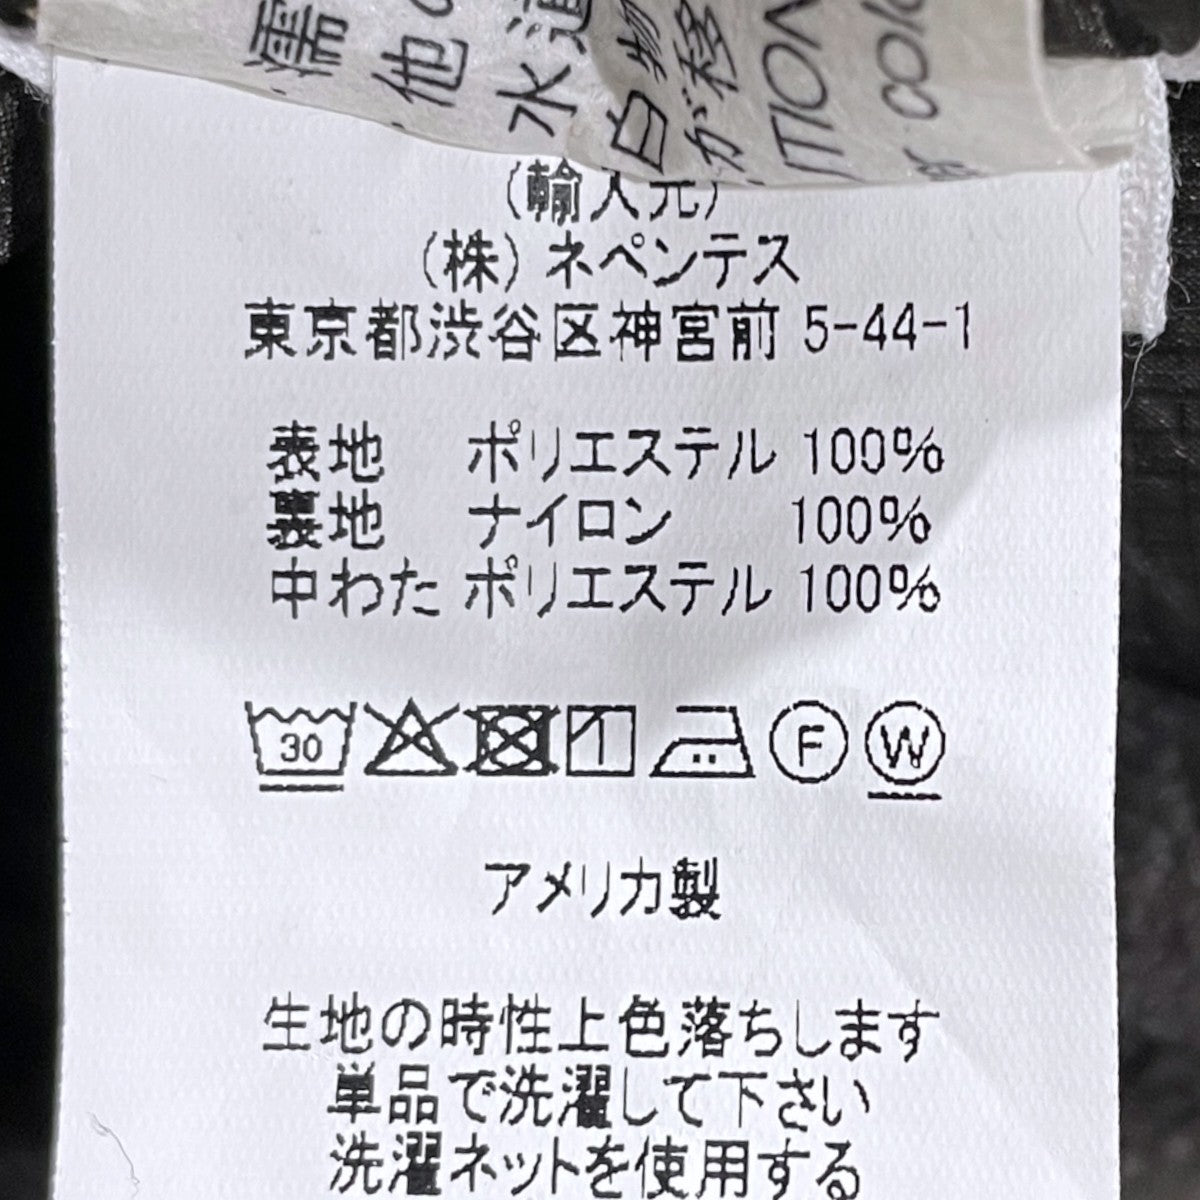 濡
他の
水道
白物
が移
ITION
color
(輸入元)
(株)ネペンテス
東京都渋谷区神宮前 5-44-1
表地 ポリエステル 100%
裏地 ナイロン 100%
中わた ポリエステル 100%
30 F W
アメリカ製
生地の時性上色落ちします
単品で洗濯して下さい
洗濯ネットを使用する